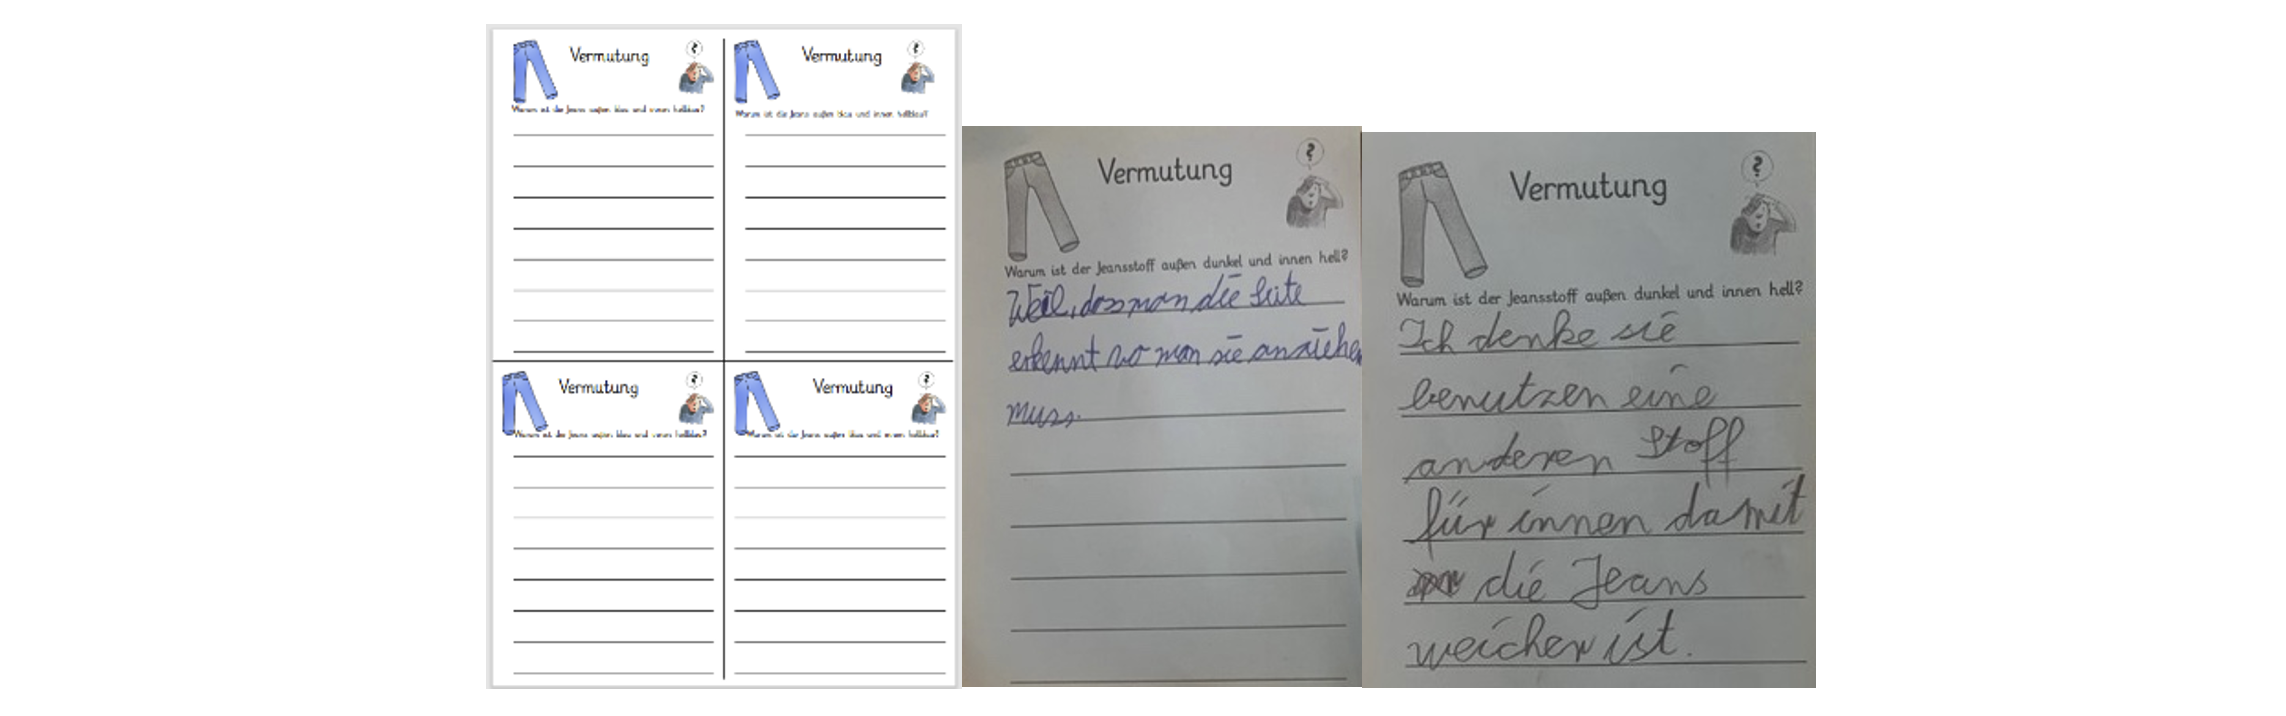 Vermutung
?
Warum ist die Jeans außen blau und innen hellblau?
Vermutung
?
Warum ist die Jeans außen blau und innen hellblau?
Vermutung
?
Warum ist die Jeans außen blau und innen hellblau?
Vermutung
?
Warum ist die Jeans außen blau und innen hellblau?
Vermutung
?
Warum ist der Jeansstoff außen dunkel und innen hell?
Weil, das man die Seite
erkennt wo man sie anziehen
muss.
Vermutung
?
Warum ist der Jeansstoff außen dunkel und innen hell?
Ich denke sie
benutzen eine
anderen Stoff
für innen damit
die Jeans
weicher ist.